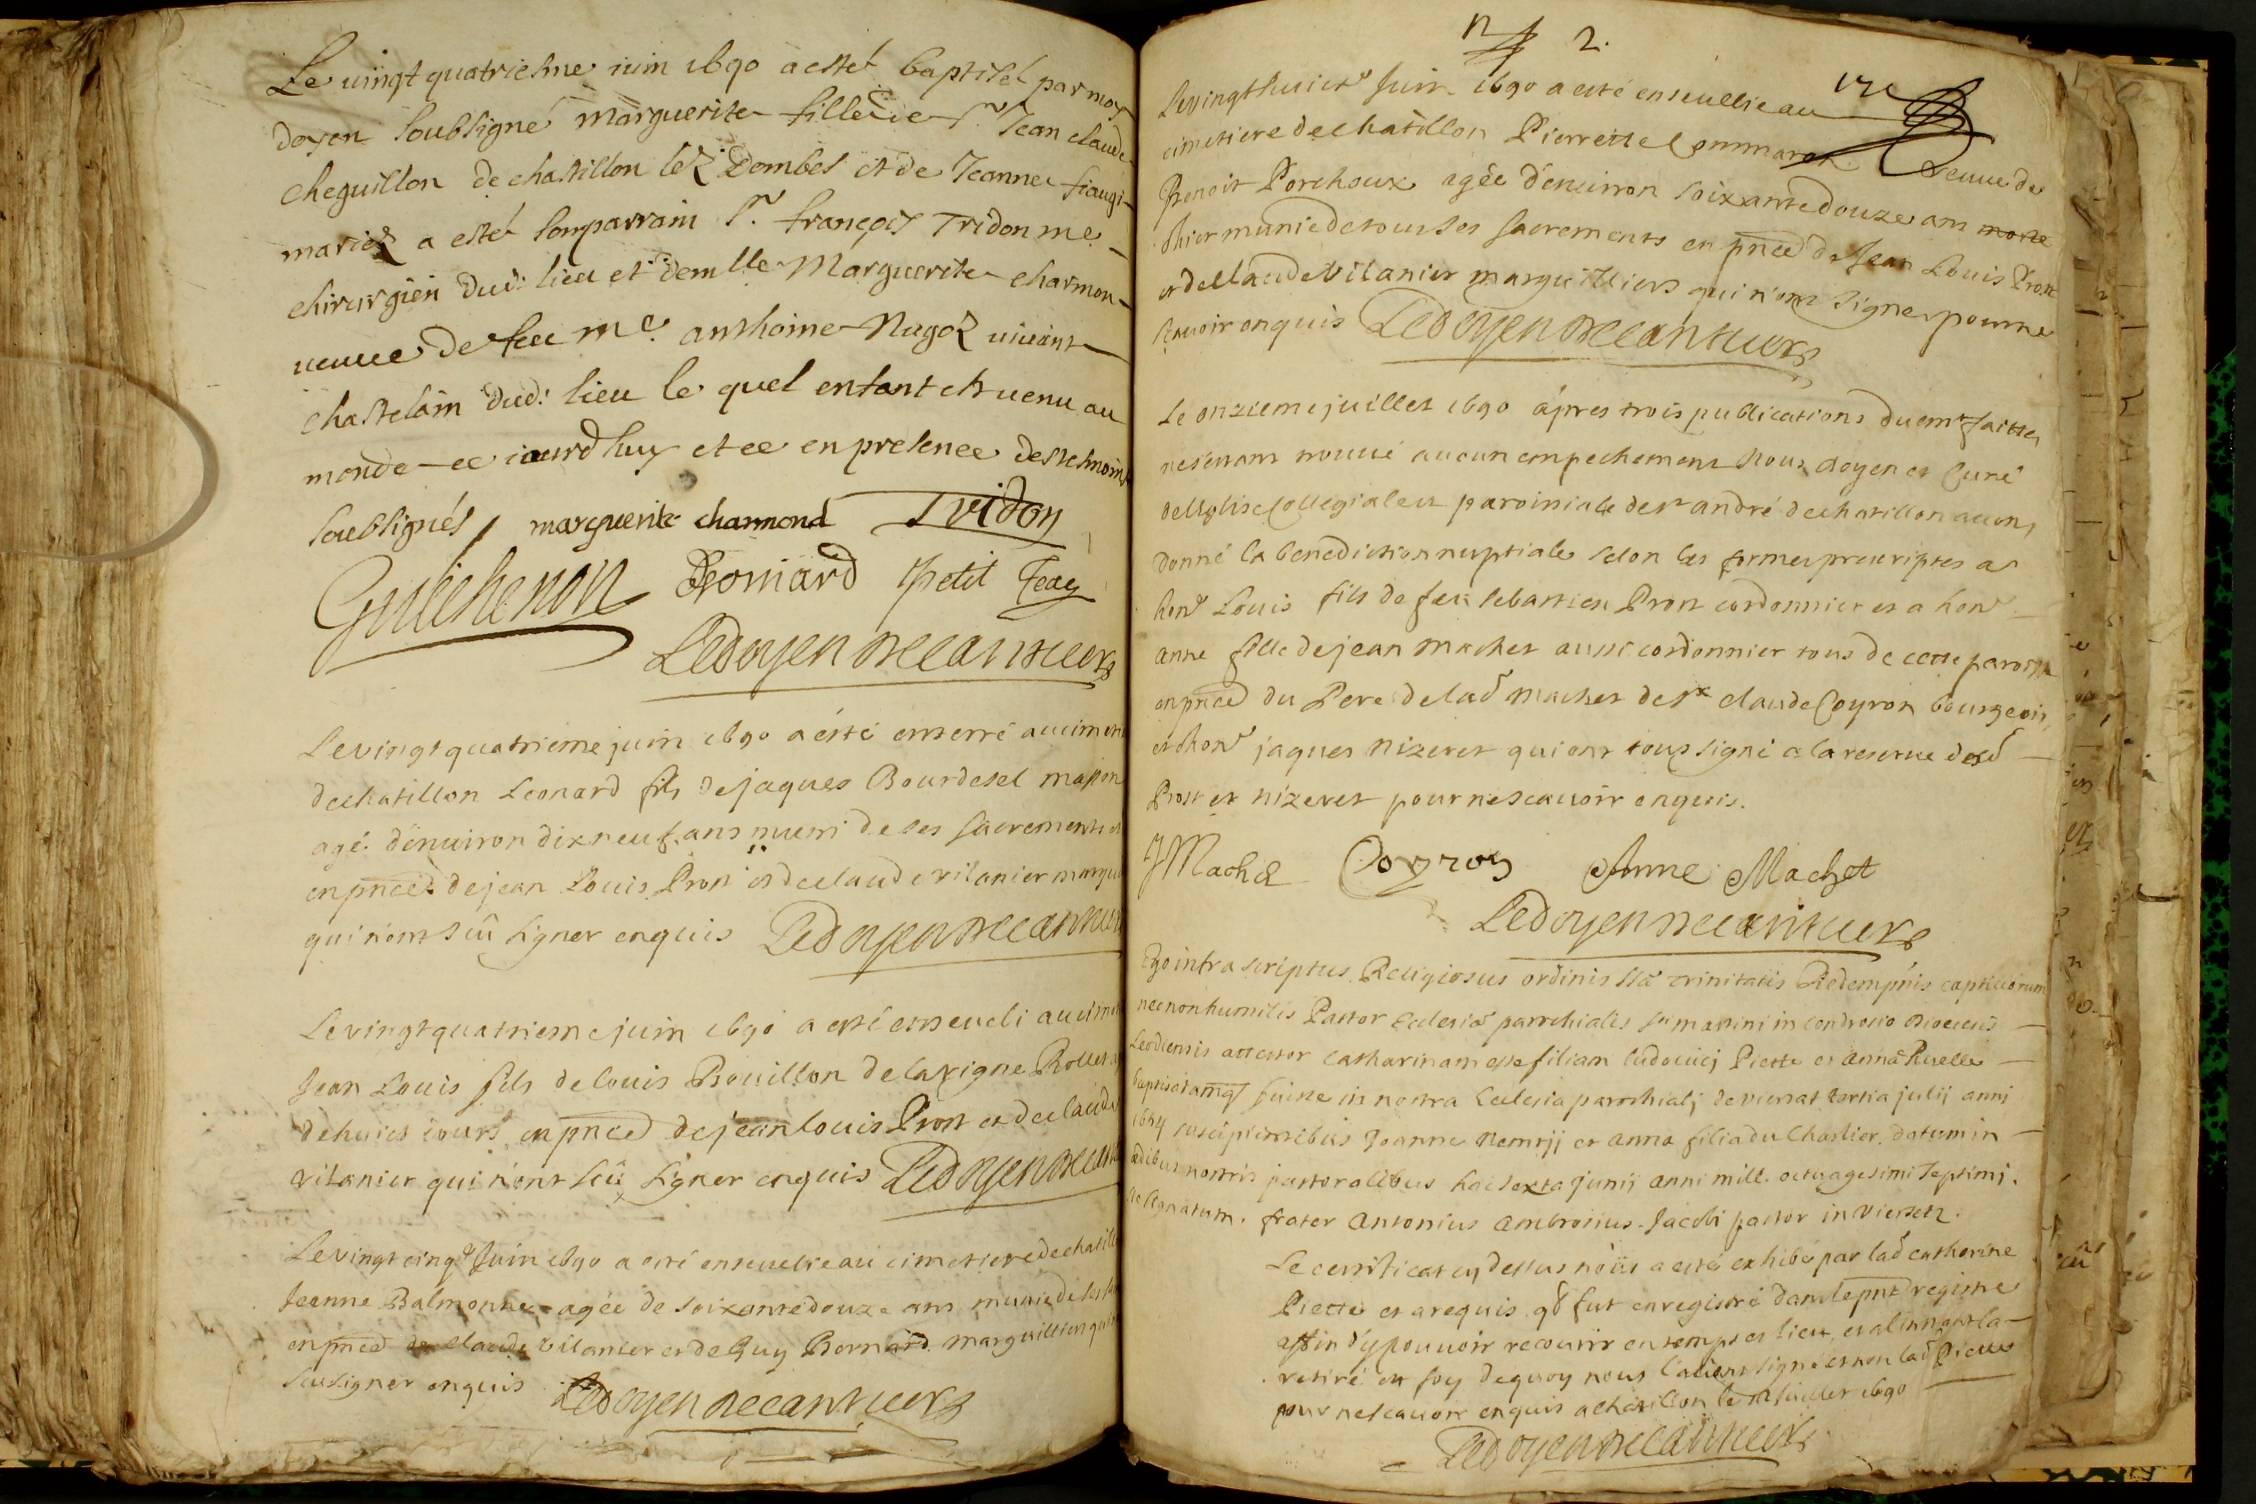 Le vingt quatriesme iuin 1690 a esté baptisée par moy
doyen soubsigné marguerite fille de sr Jean claude
cheguillon de chastillon lez Dombes et de Jeanne
mariez a esté son parrain sr françois Tridon me
chirurgien dud: lieu et demlle Marguerite charmon
ueuue de feu me anthoine Nugoz uiuant
chastelain dud: lieu le quel enfant est uenu au
monde ce iourdhuy et ce en presence des tesmoins
soubsignés / marguerite charmond Tridon
Guichenon petit Jean
Ledoyen
Le vingt quatrieme juin 1690 a esté enterré au cimeti
de chatillon Leonard fils de jaques Bourdesel masson
agé d'enuiron dix neuf ans muni de ses sacrements et
en pnce de jean Louis Prost et de claude vilanier margui
qui n'ont sçû signer enquis Ledoyen
Le vingt quatrieme juin 1690 a esté enseueli au cime
Jean Louis fils de louis Bouillon de la vigne Rollet
de huict iours en pnce de jean louis Prost et de claude
vilanier qui n'ont sçû signer enquis Ledoyen
Le vingt cinqe Juin 1690 a esté enseuelie au cimetiere de chatill
Jeanne Balmonne agée de soixante douze ans munie de
en pnce de claude vilanier et de Guy Bernard marguilliers qui
sceu signer enquis Ledoyen
2.
Le vingt huicte Juin 1690 a esté enseuellie au
cimetiere de chatillon Pierrette veuue de
Benoit Porchoux agée d'enuiron soixante douze ans morte
hier munie de tous ses sacrements en pnce de Jean Louis Prost
et de Claude Vilanier marguilliers qui n'ont signe pour ne
sçauoir enquis Ledoyen
Le onzieme juillet 1690 apres trois publications duemt faittes
ne s'etant trouué aucun empechement Nous doyen et Curé
de l'eglise Collegiale et paroissiale de st andré de chatillon auons
donné la benediction nuptiale selon les formes prescriptes a
hone Louis fils de feu sebastien Prost cordonnier et a hone
anne fille de jean machet aussi cordonnier tous de cette paroisse
en pnce du Pere de lad machet de sr claude Coyron bourgeois
et d'hone jaques Nizeret qui ont tous signé a la reserue desd
Prost et nizeret pour ne scauoir enquis.
J Machet Coyron Anne Machet
Ledoyen
Ego infra scriptus Religiosus ordinis sta trinitatis Redempnis captiuorum
nec non humilis Pastor Ecclesiæ parochialis sti martini in condrosio dioecesis
Leodiensis attestor catharinam esse filiam ludouici Piette et annæ Ruelle
baptisatamq fuisse in nostra Ecclesia parochiali de viersat tertia julij anni
1654 suscipientibus Joanne Henrij et anna filia du Charlier. datum in
ædibus nostris pastoralibus hac sexta junij anni mill. octuagesimi septimi.
signatum. frater Antonius ambrosius Jacobi pastor in viersetz.
Le certificat cy dessus nous a esté exhibé par lad catherine
Piette et a requis qd fut enregistré dans le pnt registre
affin d'y pouuoir recourir en temps et lieu, et a l'instant la
retiré en foy de quoy nous l'auons signé et non lad Piette
pour ne scauoir enquis a chatillon le juillet 1690
Ledoyen